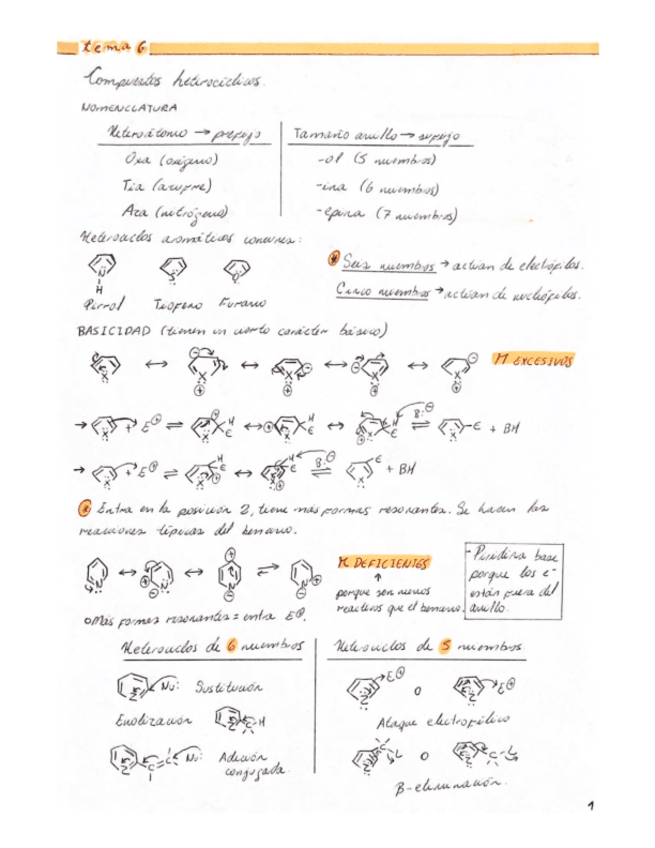 tema 6
Compuestos heterocíclicos.
NOMENCLATURA
Heteroátomo → prefijo
Tamaño anillo → sufijo
Oxa (oxígeno)
-ol (5 miembros)
Tia (azufre)
-ina (6 miembros)
Aza (nitrógeno)
-epina (7 miembros)
Heterociclos aromáticos comunes:
N
H
S
O
Pirrol Tiofeno Furano
* Seis miembros → actúan de electrófilos.
Cinco miembros → actúan de nucleófilos.
BASICIDAD (tienen un cierto carácter básico)
π EXCESIVOS
→ + E⊕ ⇌ ↔ ↔ B:⊖ ⇌ -E + BH
→ + E⊕ ⇌ ↔ B:⊖ ⇌ E + BH
* Entra en la posición 2, tiene más formas resonantes. Se hacen las
reacciones típicas del benceno.
π DEFICIENTES
↑
porque son menos
reactivos que el benceno.
- Piridina base
porque los e-
están fuera del
anillo.
o Más formas resonantes = entra E⊕.
Heterociclos de 6 miembros
Heterociclos de 5 miembros
Nu: Sustitución
E⊕ o E⊕
Enolización
Ataque electrofílico
Nu: Adición
conjugada.
o
β-eliminación.
1